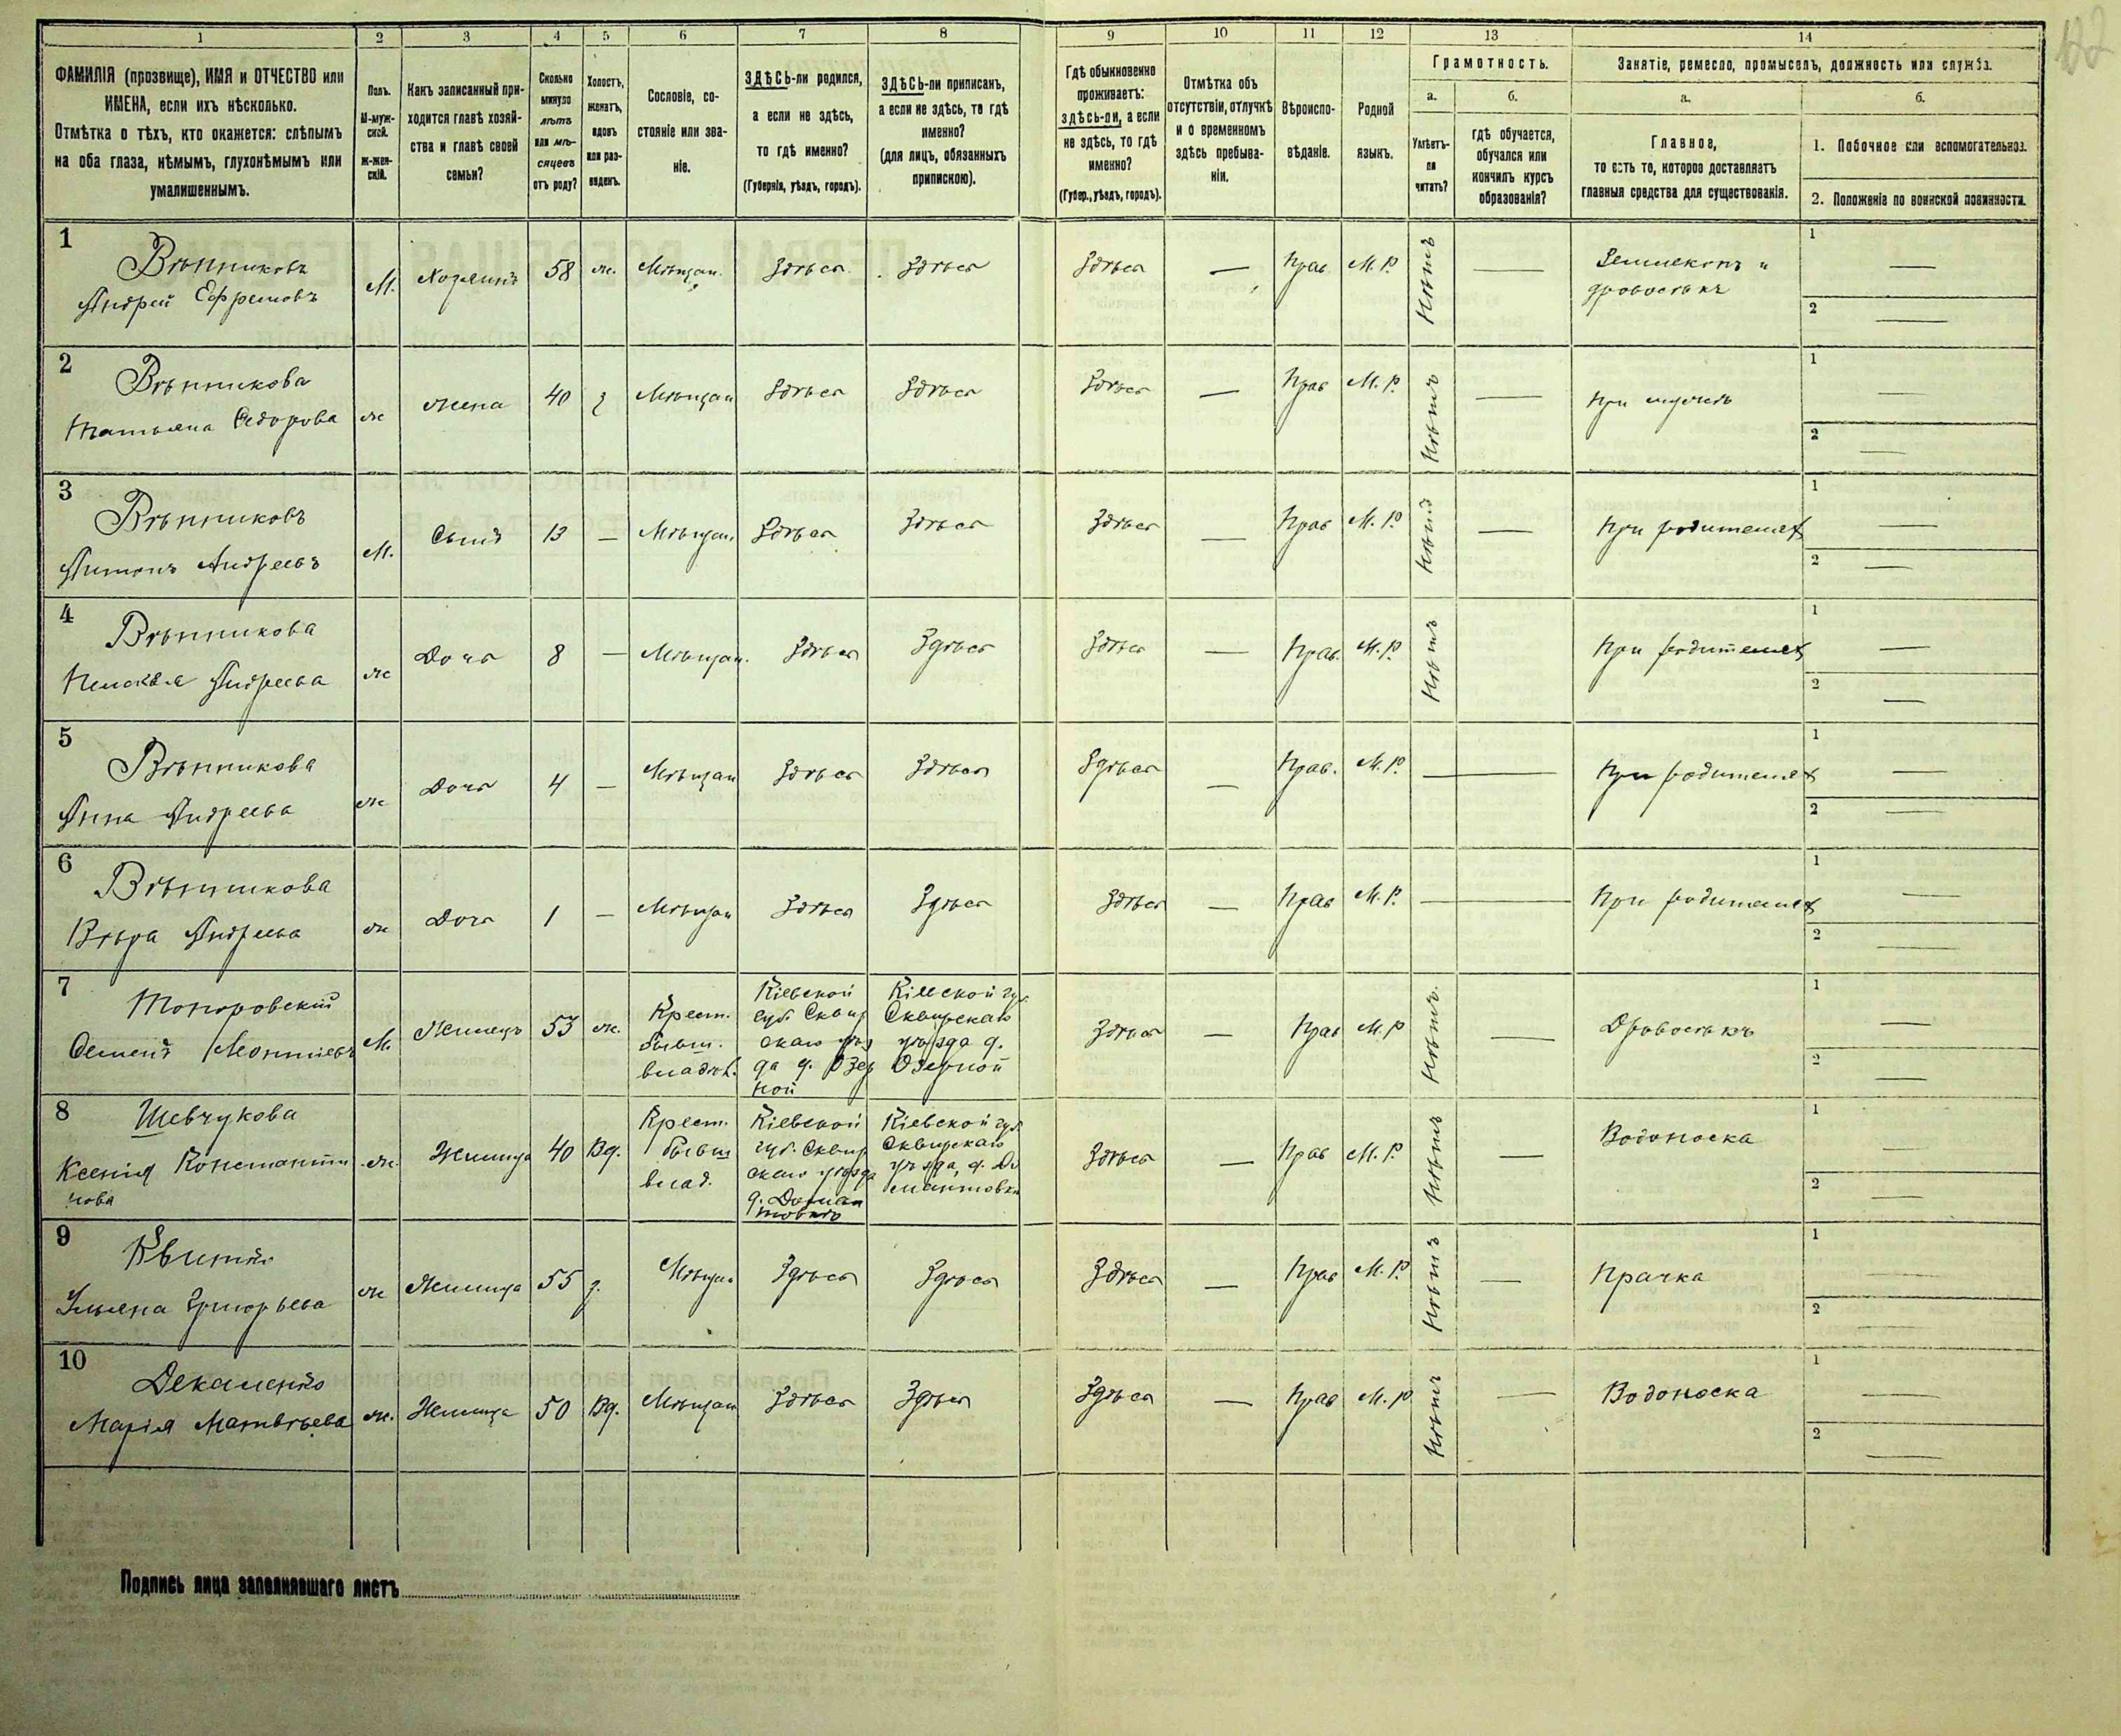 1 2 3 4 5 6 7 8 9 10 11 12 13 14
ФАМИЛІЯ (прозвище), ИМЯ и ОТЧЕСТВО или
ИМЕНА, если ихъ нѣсколько.
Отмѣтка о тѣхъ, кто окажется: слѣпымъ
на оба глаза, нѣмымъ, глухонѣмымъ или
умалишеннымъ.
Полъ.
М-муж-
ской.
Ж-жен-
скій.
Какъ записанный при-
ходится главѣ хозяй-
ства и главѣ своей
семьи?
Сколько
минуло
лѣтъ
или мѣ-
сяцевъ
отъ роду?
Холостъ,
женатъ,
вдовъ
или раз-
веденъ.
Сословіе, со-
стояніе или зва-
ніе.
ЗДѢСЬ-ли родился,
а если не здѣсь,
то гдѣ именно?
(Губернія, уѣздъ, городъ).
ЗДѢСЬ-ли приписанъ,
а если не здѣсь, то гдѣ
именно?
(для лицъ, обязанныхъ
припискою).
Гдѣ обыкновенно
проживаетъ:
здѣсь-ли, а если
не здѣсь, то гдѣ
именно?
(Губер., уѣздъ, городъ).
Отмѣтка объ
отсутствіи, отлучкѣ
и о временномъ
здѣсь пребыва-
ніи.
Вѣроиспо-
вѣданіе.
Родной
языкъ.
Грамотность.
а.
Умѣетъ-
ли
читать?
б.
гдѣ обучается,
обучался или
кончилъ курсъ
образованія?
Занятіе, ремесло, промыселъ, должность или служба.
а.
Главное,
то есть то, которое доставляетъ
главныя средства для существованія.
б.
1. Побочное или вспомогательное.
2. Положеніе по воинской повинности.
1
Вѣтниковъ
Андрей Ефремовъ
М.
Хозяинъ
58
ж.
Мѣщан.
Здѣсь
Здѣсь
Здѣсь
—
Прав.
М. Р.
Нѣтъ
—
Землекопъ и
дровосѣкъ
1 —
2 —
2
Вѣтникова
Татьяна Сидорова
ж
жена
40
з
Мѣщан
Здѣсь
Здѣсь
Здѣсь
—
Прав
М. Р.
Нѣтъ
—
При мужѣ
1 —
2 —
3
Вѣтниковъ
Антонъ Андреевъ
М.
Сынъ
13
—
Мѣщан.
Здѣсь
Здѣсь
Здѣсь
—
Прав
М. Р.
Нѣтъ
—
При родителях
1 —
2 —
4
Вѣтникова
Андреева
ж
Дочь
8
—
Мѣщан.
Здѣсь
Здѣсь
Здѣсь
—
Прав.
М. Р.
Нѣтъ
При родителях
1 —
2 —
5
Вѣтникова
Анна Андреева
ж
Дочь
4
—
Мѣщан
Здѣсь
Здѣсь
Здѣсь
—
Прав.
М. Р.
—
При родителях
1 —
2 —
6
Вѣтникова
Вѣра Андреева
ж
Дочь
1
—
Мѣщан
Здѣсь
Здѣсь
Здѣсь
—
Прав
М. Р.
—
При родителях
1 —
2 —
7
Топоровскій
Семенъ Леонтіевъ
М.
Жилецъ
53
ж.
Крест.
бывш.
владѣл.
Кіевской
губ. Сквир
скаго уѣз
да д. Озер
ной
Кіевской губ.
Сквирскаго
уѣзда д.
Озерной
Здѣсь
—
Прав
М. Р
Нѣтъ.
—
Дровосѣкъ
1 —
2 —
8
Шевчукова
Ксенія Константи
нова
ж.
Жилица
40
Вд.
Крест.
бывш
влад.
Кіевской
губ. Сквир
скаго уѣзда
Кіевской губ.
Сквирскаго
уѣзда, д.
Здѣсь
—
Прав
М. Р.
Нѣтъ
—
Водоноска
1 —
2 —
9
Квитко
Ульяна Григорьева
ж
Жилица
55
з.
Мѣщан
Здѣсь
Здѣсь
Здѣсь
—
Прав
М. Р.
Нѣтъ
—
Прачка
1 —
2 —
10
Марія Матвѣева
ж.
Жилица
50
Вд.
Мѣщан
Здѣсь
Здѣсь
Здѣсь
—
Прав
М. Р
Нѣтъ
—
Водоноска
1 —
2 —
Подпись лица заполнявшаго листъ